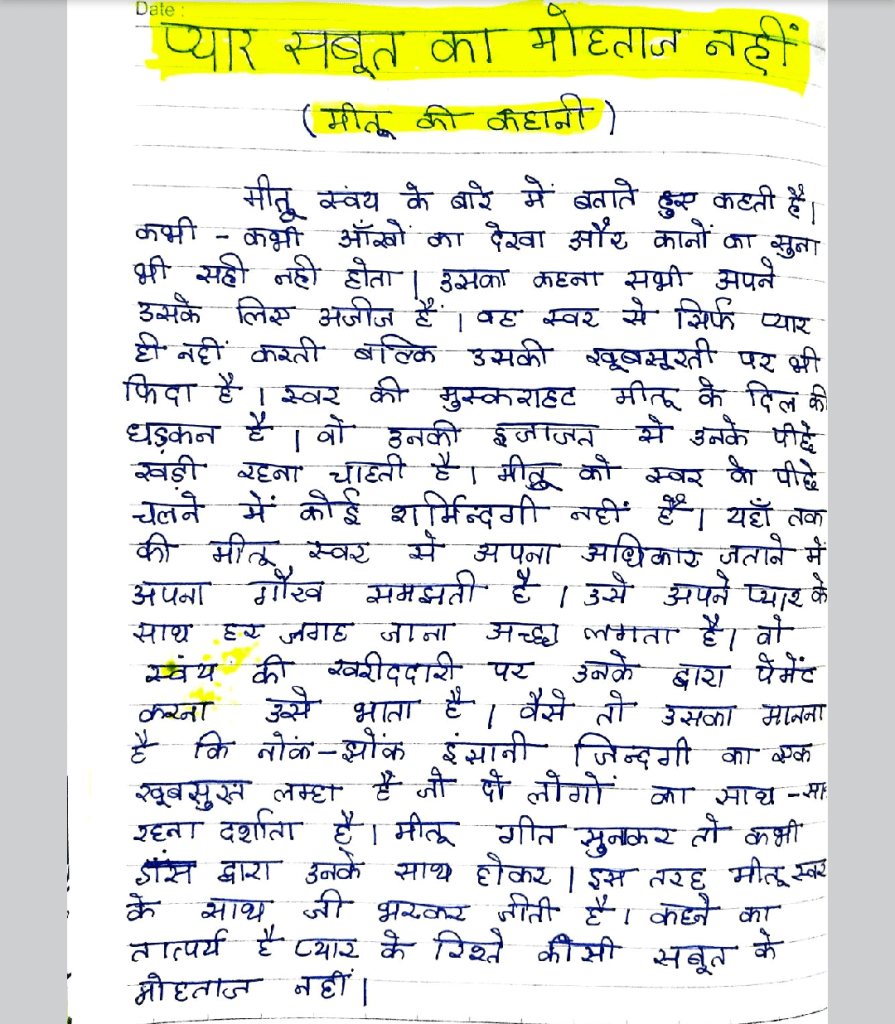 Date :
प्यार सबूत का मोहताज नहीं
(मीतू की कहानी)
मीतू स्वंय के बारे में बताते हुए कहती है।
कभी - कभी आँखों का देखा और कानों का सुना
भी सही नही होता। उसका कहना सभी अपने
उसके लिए अजीज हैं। वह स्वर से सिर्फ प्यार
ही नहीं करती बल्कि उसकी खूबसूरती पर भी
फिदा है। स्वर की मुस्कराहट मीतू के दिल की
धड़कन है। वो उनकी इजाजत से उनके पीछे
खड़ी रहना चाहती है। मीतू को स्वर के पीछे
चलने में कोई शर्मिन्दगी नहीं है। यहाँ तक
की मीतू स्वर से अपना अधिकार जताने में
अपना गौरव समझती है। उसे अपने प्यार के
साथ हर जगह जाना अच्छा लगता है। वो
स्वंय की खरीददारी पर उनके द्वारा पेमेंट
करना उसे भाता है। वैसे तो उसका मानना
है कि नोंक-झोंक इंसानी जिन्दगी का एक
खूबसुरत लम्हा है जो दो लोगों का साथ -सा
रहना दर्शाता है। मीतू गीत सुनकर तो कभी
डांस द्वारा उनके साथ होकर। इस तरह मीतू स्वर
के साथ जी भरकर जीती है। कहने का
तात्पर्य है प्यार के रिश्ते कीसी सबूत के
मोहताज नहीं।